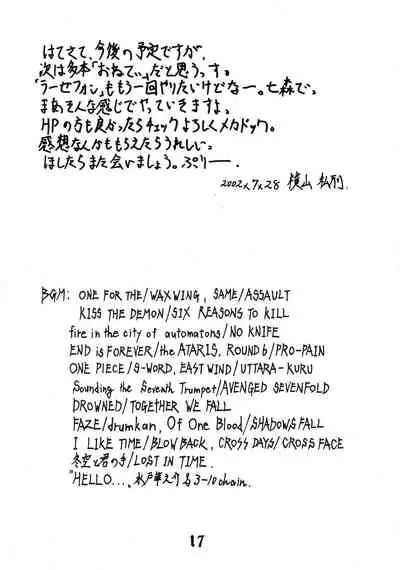 はてさて、今後の予定ですが、
次は多本「おねてぃ」だと思うっす。
「ラーゼフォン」ももう一回やりたいけどなー。七森で。
まあそんな感じでやっていきますよ。
HPの方も良かったらチェックよろしくメカドック。
感想なんかももらえたらうれしい。
ほしたらまた会いましょう。ぷりー。
2002.7.28 横山私刑.
BGM: ONE FOR THE/WAXWING, SAME/ASSAULT
KISS THE DEMON/SIX REASONS TO KILL
fire in the city of automatons/NO KNIFE
END is FOREVER/the ATARIS, ROUND 6/PRO-PAIN
ONE PIECE/S-WORD, EAST WIND/UTTARA-KURU
Sounding the Seventh Trumpet/AVENGED SEVENFOLD
DROWNED/TOGETHER WE FALL
FAZE/drumkan, Of One Blood/SHADOWS FALL
I LIKE TIME/BLOW BACK, CROSS DAYS/CROSS FACE
冬空と君の手/LOST IN TIME.
"HELLO..., 水戸華之介&3-10chain.
17